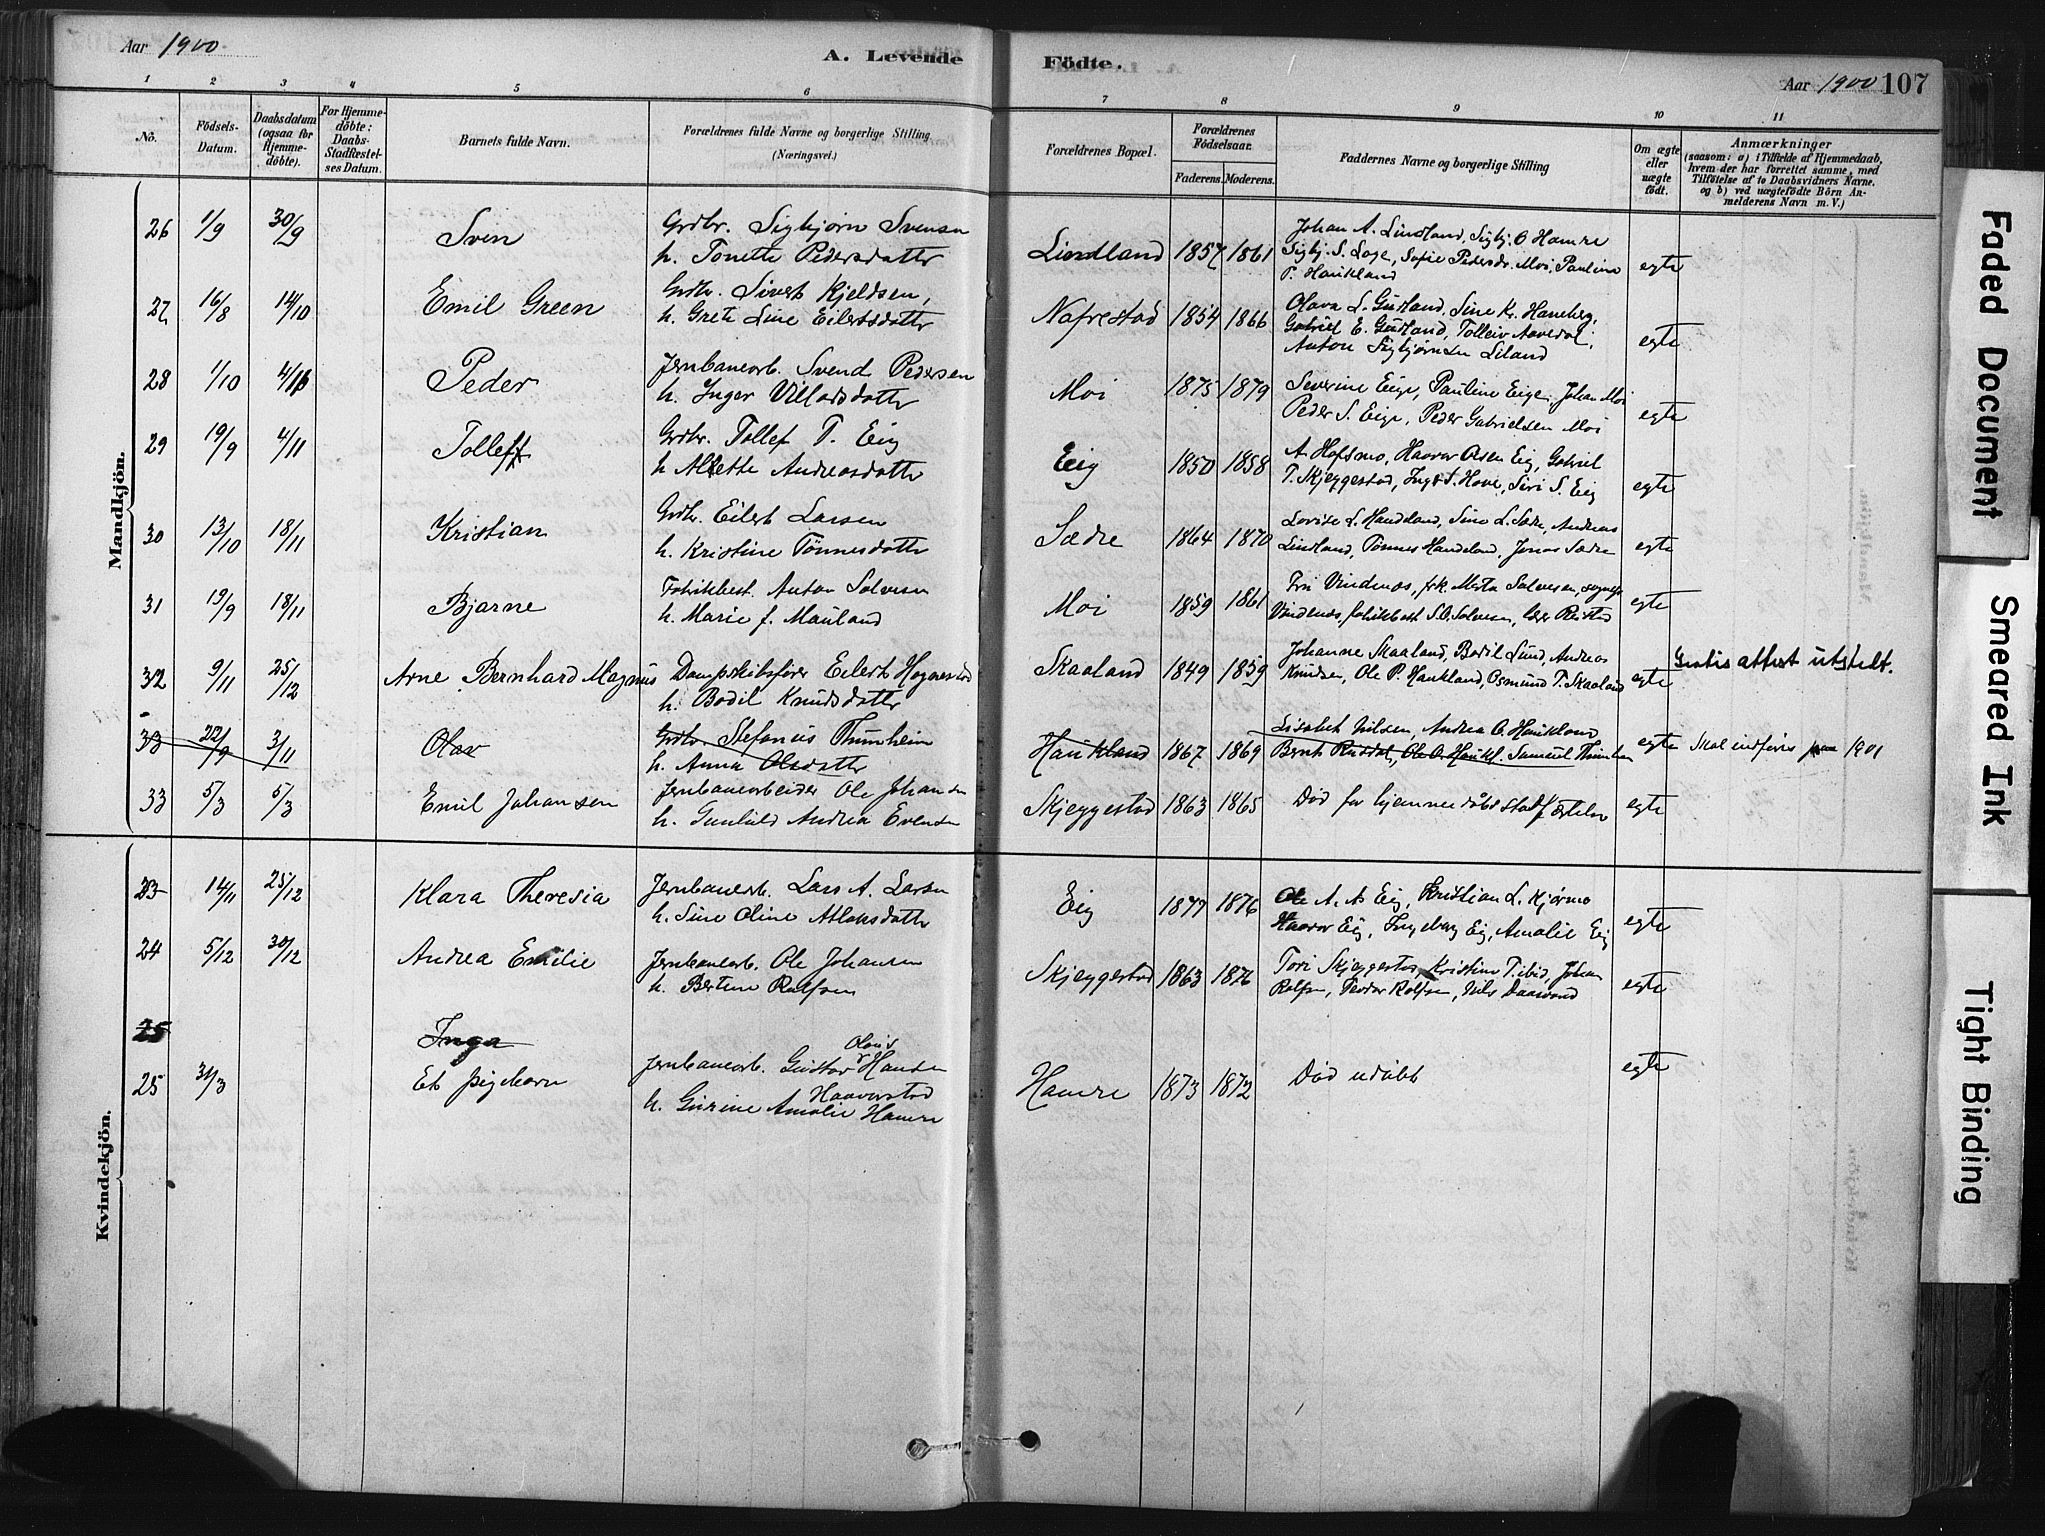 Aar 1900
A. Levende
Födte.
Aar 1900 107
1 2 3 4 5 6 7 8 9 10 11
No.
Födsels-Datum.
Daabsdatum (ogsaa for Hjemme-döbte).
For Hjemme-döbte: Daabs-Stadfæstel-ses Datum.
Barnets fulde Navn.
Forældrenes fulde Navne og borgerlige Stilling.
(Næringsvei.)
Forældrenes Bopæl.
Forældrenes Födselsaar.
Faderens. Moderens.
Faddernes Navne og borgerlige Stilling
Om ægte eller uægte födt.
Anmærkninger
(saasom: a) i Tilfælde af Hjemmedaab, hvem der har forrettet samme, med Tilföielse af to Daabsvidners Navne, og b) ved uægtefödte Börn An-melderens Navn m. V.)
Mandkjön.
26 1/9 30/9 Sven Grdbr. Sigbjørn Svensen
h. Tonette Pedersdatter
Lindland 1857 1861 Johan A. Lindland, Sigbj. O Hamre
Sigbj. S. Loge, Sofie Pedersdr. Moi, Pauline
P. Haukland egte
27 16/8 14/10 Emil Green Grdbr. Sivert Kjeldsen,
h. Grete Line Eilertsdatter
Nafrestad 1854 1866 Olava L. Gudland, Sine K. Haneberg,
Gabriel E. Gudland, Tolleiv Aavedal,
Anton Sigbjørnsen Liland egte
28 1/10 4/11 Peder Jernbanearb. Svend Pedersen
h. Inger Villadsdatter
Moi 1875 1879 Severine Eige, Pauline Eige, Johan Moi
Peder S. Eige, Peder Gabrielsen Moi egte
29 19/9 4/11 Tolleff Grdbr. Tollef T. Eig
h Allette Andreasdatter
Eig 1850 1858 A. Hofsmo, Haavar Olsen Eig, Gabriel
T. Skjeggestad, Inga T. Hove, Siri S. Eig egte
30 13/10 18/11 Kristian Grdbr. Eilert Larsen
h. Kristine Tønnesdatter
Sædre 1864 1870 Lovise L. Handeland, Sine L. Sædre, Andreas
Lindland, Tønnes Handeland, Jonas Sædre egte
31 19/9 18/11 Bjarne Fabrikbest. Anton Salvesen
h. Marie f. Mauland
Moi 1859 1861 Fru Vindenæs, frk. Marta Salvesen, sognepr.
Vindenæs, fabrikbest S.O. Salvesen, egte
32 9/11 25/12 Arne Bernhard Magnus Dampskibsfører Eilert Hognestad
h. Bodil Knudsdatter
Skaaland 1849 1859 Johanne Skaaland, Bodil Lund, Andreas
Knudsen, Ole P. Haukland, Osmund T. Skaaland egte Gratis attest utstelt.
33 22/9 3/11 Olav Grdbr. Stefanus Thunheim
h. Anna Olsdatter
Haukland 1867 1869 Lisabet Nilsen, Andrea O. Haukland
Bernt Rusdal, Ole O. Haukl. Samuel Thunheim egte Skal indføres 1901
33 5/3 5/3 Emil Johansen Jernbanearbeider Ole Johansen
h. Gunhild Andrea Evensen
Skjeggestad 1863 1865 Død før hjemmedåbs stadfæstelse egte
Kvindekjön.
23 14/11 25/12 Klara Theresia Jernbanearb. Lars A. Larsen
h. Sine Oline Atlaksdatter
Eig 1877 1876 Ole A. A. Eig, Kristian L. Kjørmo
Haavar Eig, Ingeborg Eig, Amalie Eig egte
24 5/12 30/12 Andrea Emilie Jernbanearb. Ole Johansen
h. Bertine Rolfsen
Skjeggestad 1863 1876 Tori Skjeggestad, Kristine T. ibid, Johan
Rolfsen, Teodor Rolfsen, Nils Daasvand egte
25 Inga
25 31/3 Et pigebarn Jernbanearb. Gustav Olaus Hansen Haaverstad
h. Gurine Amalie Hamre
Hamre 1873 1872 Død udøbt egte
Faded Document
Smeared Ink
Tight Binding